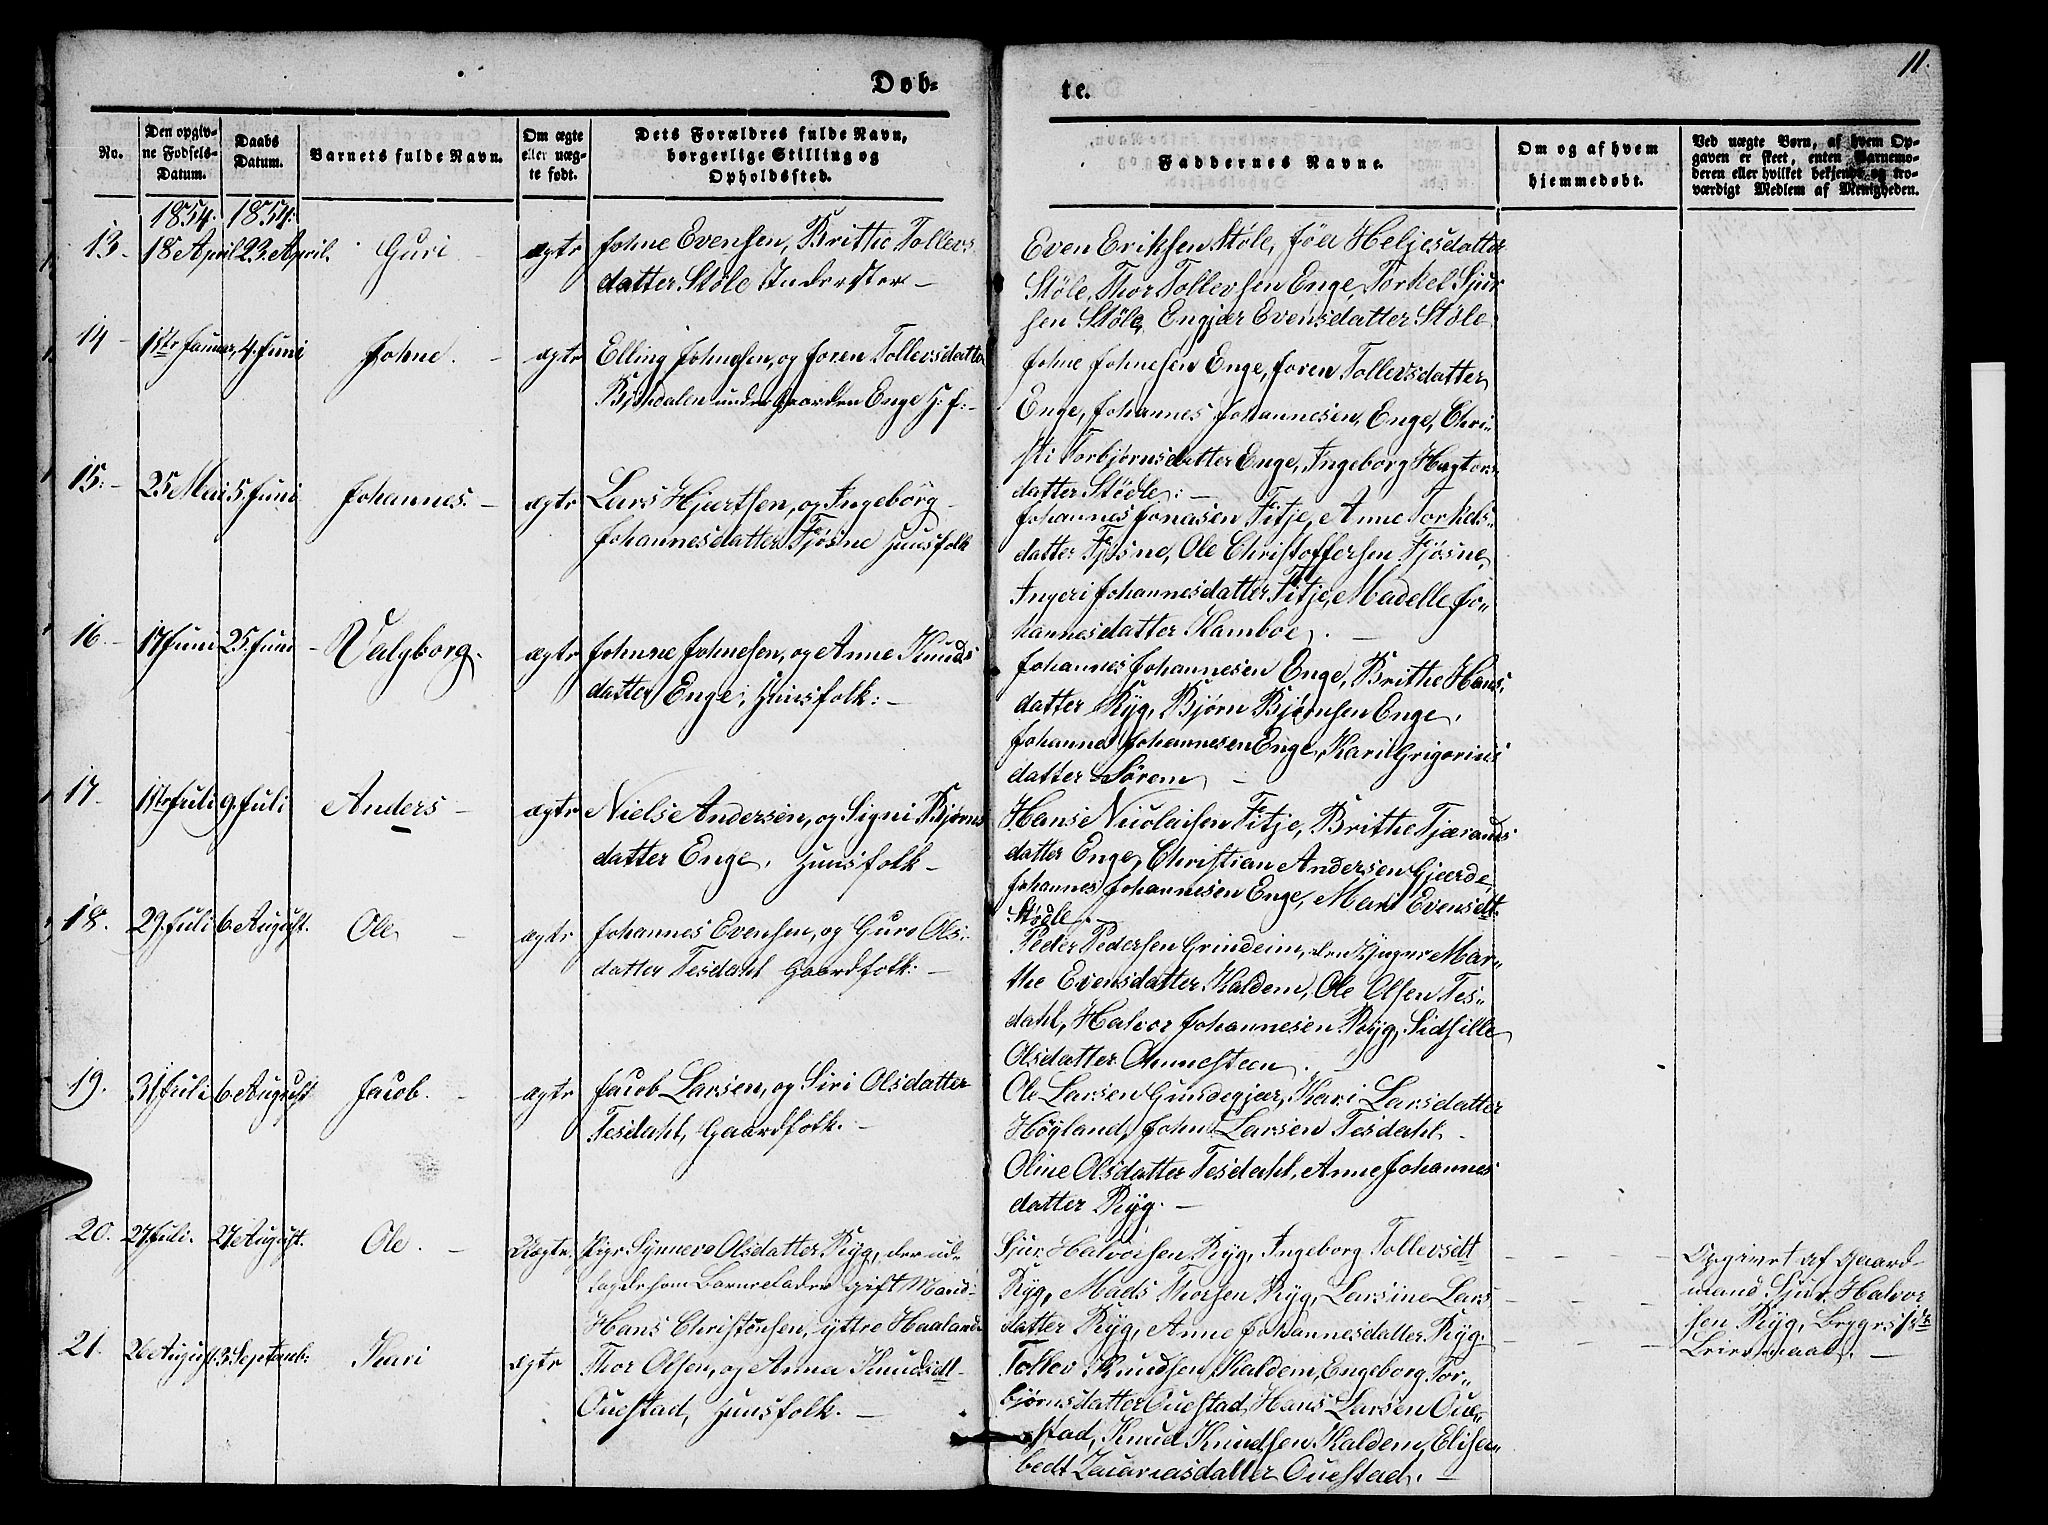 Døb-
te.
11.
No.
Den opgiv-
ne Fødsels-
Datum.
Daabs
Datum.
Barnets fulde Navn.
Om ægte
eller uæg-
te født.
Dets Forældres fulde Navn,
borgerlige Stilling og
Opholdssted.
Faddernes Navne.
Om og af hvem
hjemmedøbt.
Ved uægte Børn, af hvem Op-
gaven er skeet, enten Barnemo-
deren eller hvilket bekjendt og tro-
værdigt Medlem af Menigheden.
1854. 1854.
13. 18 April 23. April. Guri ægte
Johne Evensen, Brithe Tollevs
datter Støle
Even Eriksen Støle, Heljesdatter
Støle, Thor Tollevsen Enge, Torkel Sjur
sen Støle, Engjær Evensdatter Støle
14 1ste Januar, 4. Juni Johne. ægte
Elling Johnesen, og Joren Tollevsdatter
under Gaarden Enge H: f:
Johne Johnesen Enge, Joren Tollevsdatter
Enge, Johannes Johannesen Enge, Chri-
sti Torbjørnsdatter Enge, Ingeborg
datter Stødle:
15. 25 Mai 5. Juni Johannes. ægte
Lars Hjertsen, og Ingeborg
Johannesdatter Fjøsne Huusfolk
Johannes Jonasen Fitje, Anne Torkels-
datter Fjøsne, Ole Christoffersen Fjøsne,
Ingeri Johannesdatter Fitje, Madelle Jo-
hannesdatter Kamboe.
16. 17 Juni 25 Juni Valgborg. ægte
Johnne Johnesen, og Anne Knuds
datter Enge, Huusfolk:
Johannes Johannesen Enge, Brithe Hans
datter Ryg, Bjørn Bjørnsen Enge,
Johannes Johannesen Enge, Kari Grigorius
datter Sørem
17. 1ste Juli 9. Juli Anders ægte
Niels Andersen, og Signi Bjørns
datter Enge, Huusfolk
Hans Nicolaisen Fitje, Brithe Tjærands
datter Enge, Christian Andersen Gjærde,
Johannes Johannesen Enge, Mari Evensdt.
Stødle.
18. 29. Juli 6. August. Ole ægte
Johannes Evensen, og Guro Ols-
datter Tesdahl Gaardfolk:
Peder Pedersen Grindeim, den Yngre Mar-
the Evensdatter Haldem, Ole Olsen Tes-
dahl, Halvor Johannesen Ryg, Sidsille
Olsdatter
19. 31 Juli 6. August Jacob. ægte
Jacob Larsen, og Siri Olsdatter
Tesdahl, Gaardfolk.
Ole Larsen Kari Larsdatter
Høgland, John Larsen Tesdahl
Oline Olsdatter Tesdahl, Anne Johannes
datter Ryg.
20. 27 Juli. 27 August. Ole. Uægte
Pige Synneva Olsdatter Ryg, den ud-
lagde som Barnefader gift Mand
Hans Christensen, yttre Haaland
Sjur Halvorsen Ryg, Ingeborg Tollevsdt
Ryg, Mads Thorsen Ryg, Larsine Lars
datter Ryg, Anne Johannesdatter Ryg.
Opgivet af Gaard-
mand Sjur Halvor
sen Ryg, Begges 1ste
Leiermaal.
21. 26 August 3 Septemb: Kari ægte
Thor Olsen, og Anna Knudsdt
Ouestad, Huusfolk.
Tollev Knudsen Haldem, Engeborg Tor-
bjørnsdatter Ouestad, Hans Larsen Oue-
stad, Knud Knudsen Haldem, Elisa-
bedt Zacariasdatter Ouestad.